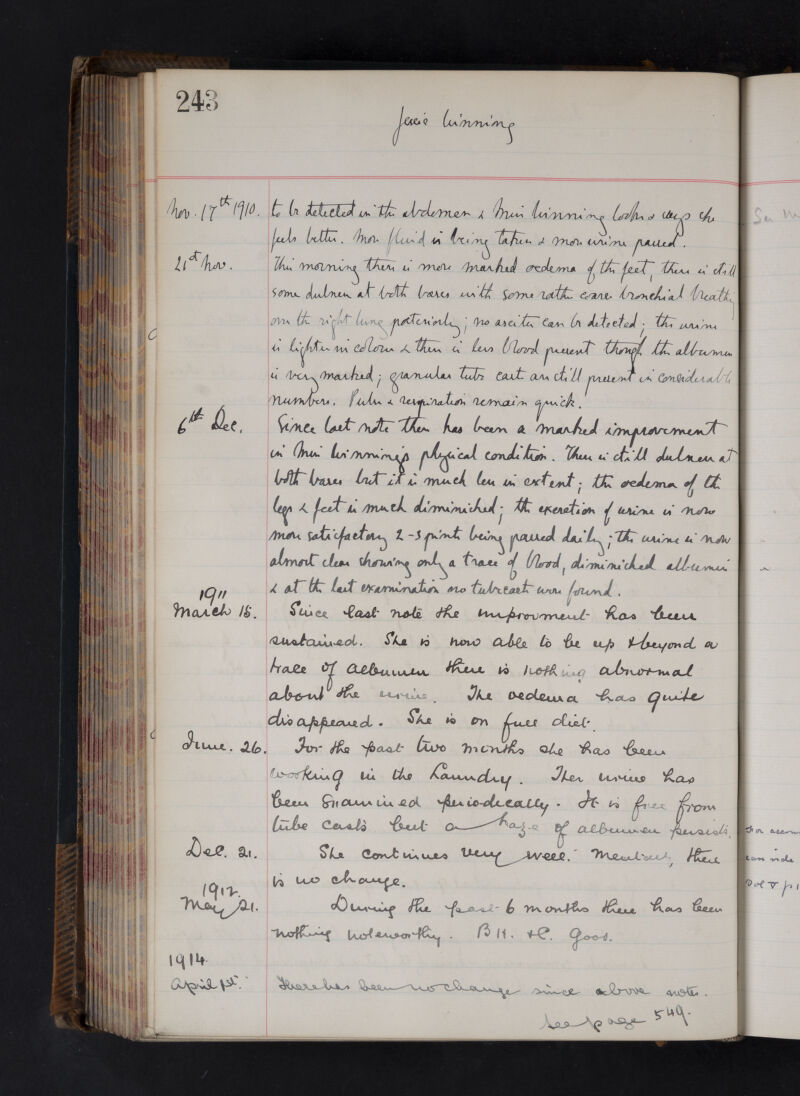 243
Jessie Winning
Nov. 17th 1910. to be detected in the abdomen & Miss Winning looks & says she
feels better. More fluid is being taken & more urine passed.
21st Nov. This morning there is more marked oedema of the feet, there is still
some dulness at both bases with some rather coarse bronchial breathing
over the right lung posteriorly; no ascites can be detected; the urine
is lighter in colour & there is less blood present though the albumen
is very marked; granular tube casts are still present in considerable
numbers. Pulse & respiration remain quick.
6th Dec. Since last note there has been a marked improvement
in Miss Winning's physical condition. There is still dulness at
both bases but it is much less in extent; the oedema of the
legs & feet is much diminished; the excretion of urine is now
more satisfactory 2-3 pints being passed daily; the urine is now
almost clear showing only a trace of blood, diminished albumen
& at the last examination no tubecasts were found.
1911
March 15. Since last note the improvment has been
sustained. She is now able to be up & beyond a
trace of albumen there is nothing abnormal
about the urine. The oedema has quite
disappeared. She is on full diet.
June. 26. For the past two months she has been
working in the Laundry. Her urine has
been examined periodically. It is free from
tube casts but a haze of albumen persists.
Dec. 21. She continues very well. Mentally, there
is no change.
1912.
May 21. During the past 6 months there has been
nothing noteworthy. B.H. &c. Good.
1914
April 1st. There has been no change since above notes.
See page 549.